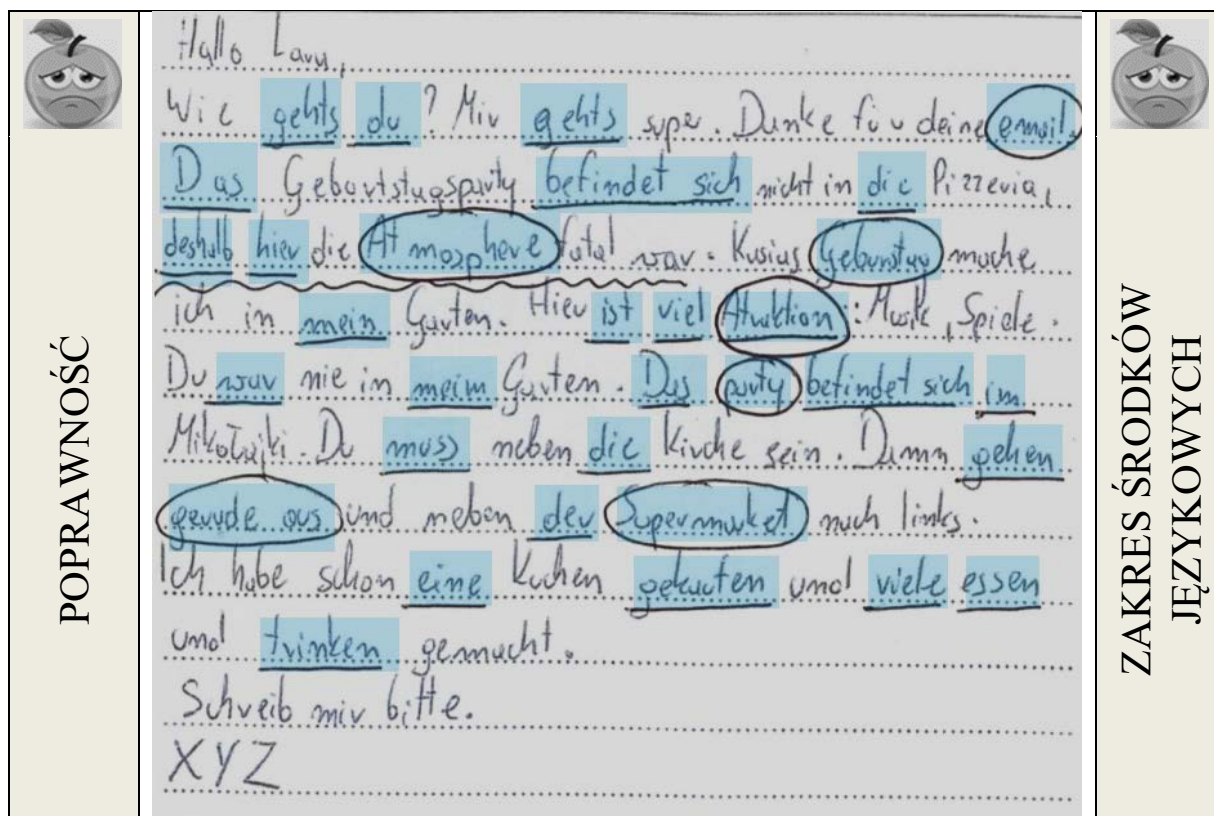 POPRAWNOŚĆ
Hallo Lara,
Wie gehts du? Mir gehts super. Danke für deine email.
Das Geburtstagsparty befindet sich nicht in die Pizzeria,
deshalb hier die Atmosphere fatal war. Kasias Geburstag mache
ich in mein Garten. Hier ist viel Atraktion: Musik, Spiele.
Du war nie in meim Garten. Das party befindet sich im
Mikołajki. Du muss neben die Kirche sein. Damn gehen
gerade aus und neben der Supermarket nach links.
Ich habe schon eine Kuchen gekauten und viele essen
und trinken gemacht.
Schreib mir bitte.
XYZ
ZAKRES ŚRODKÓW
JĘZYKOWYCH